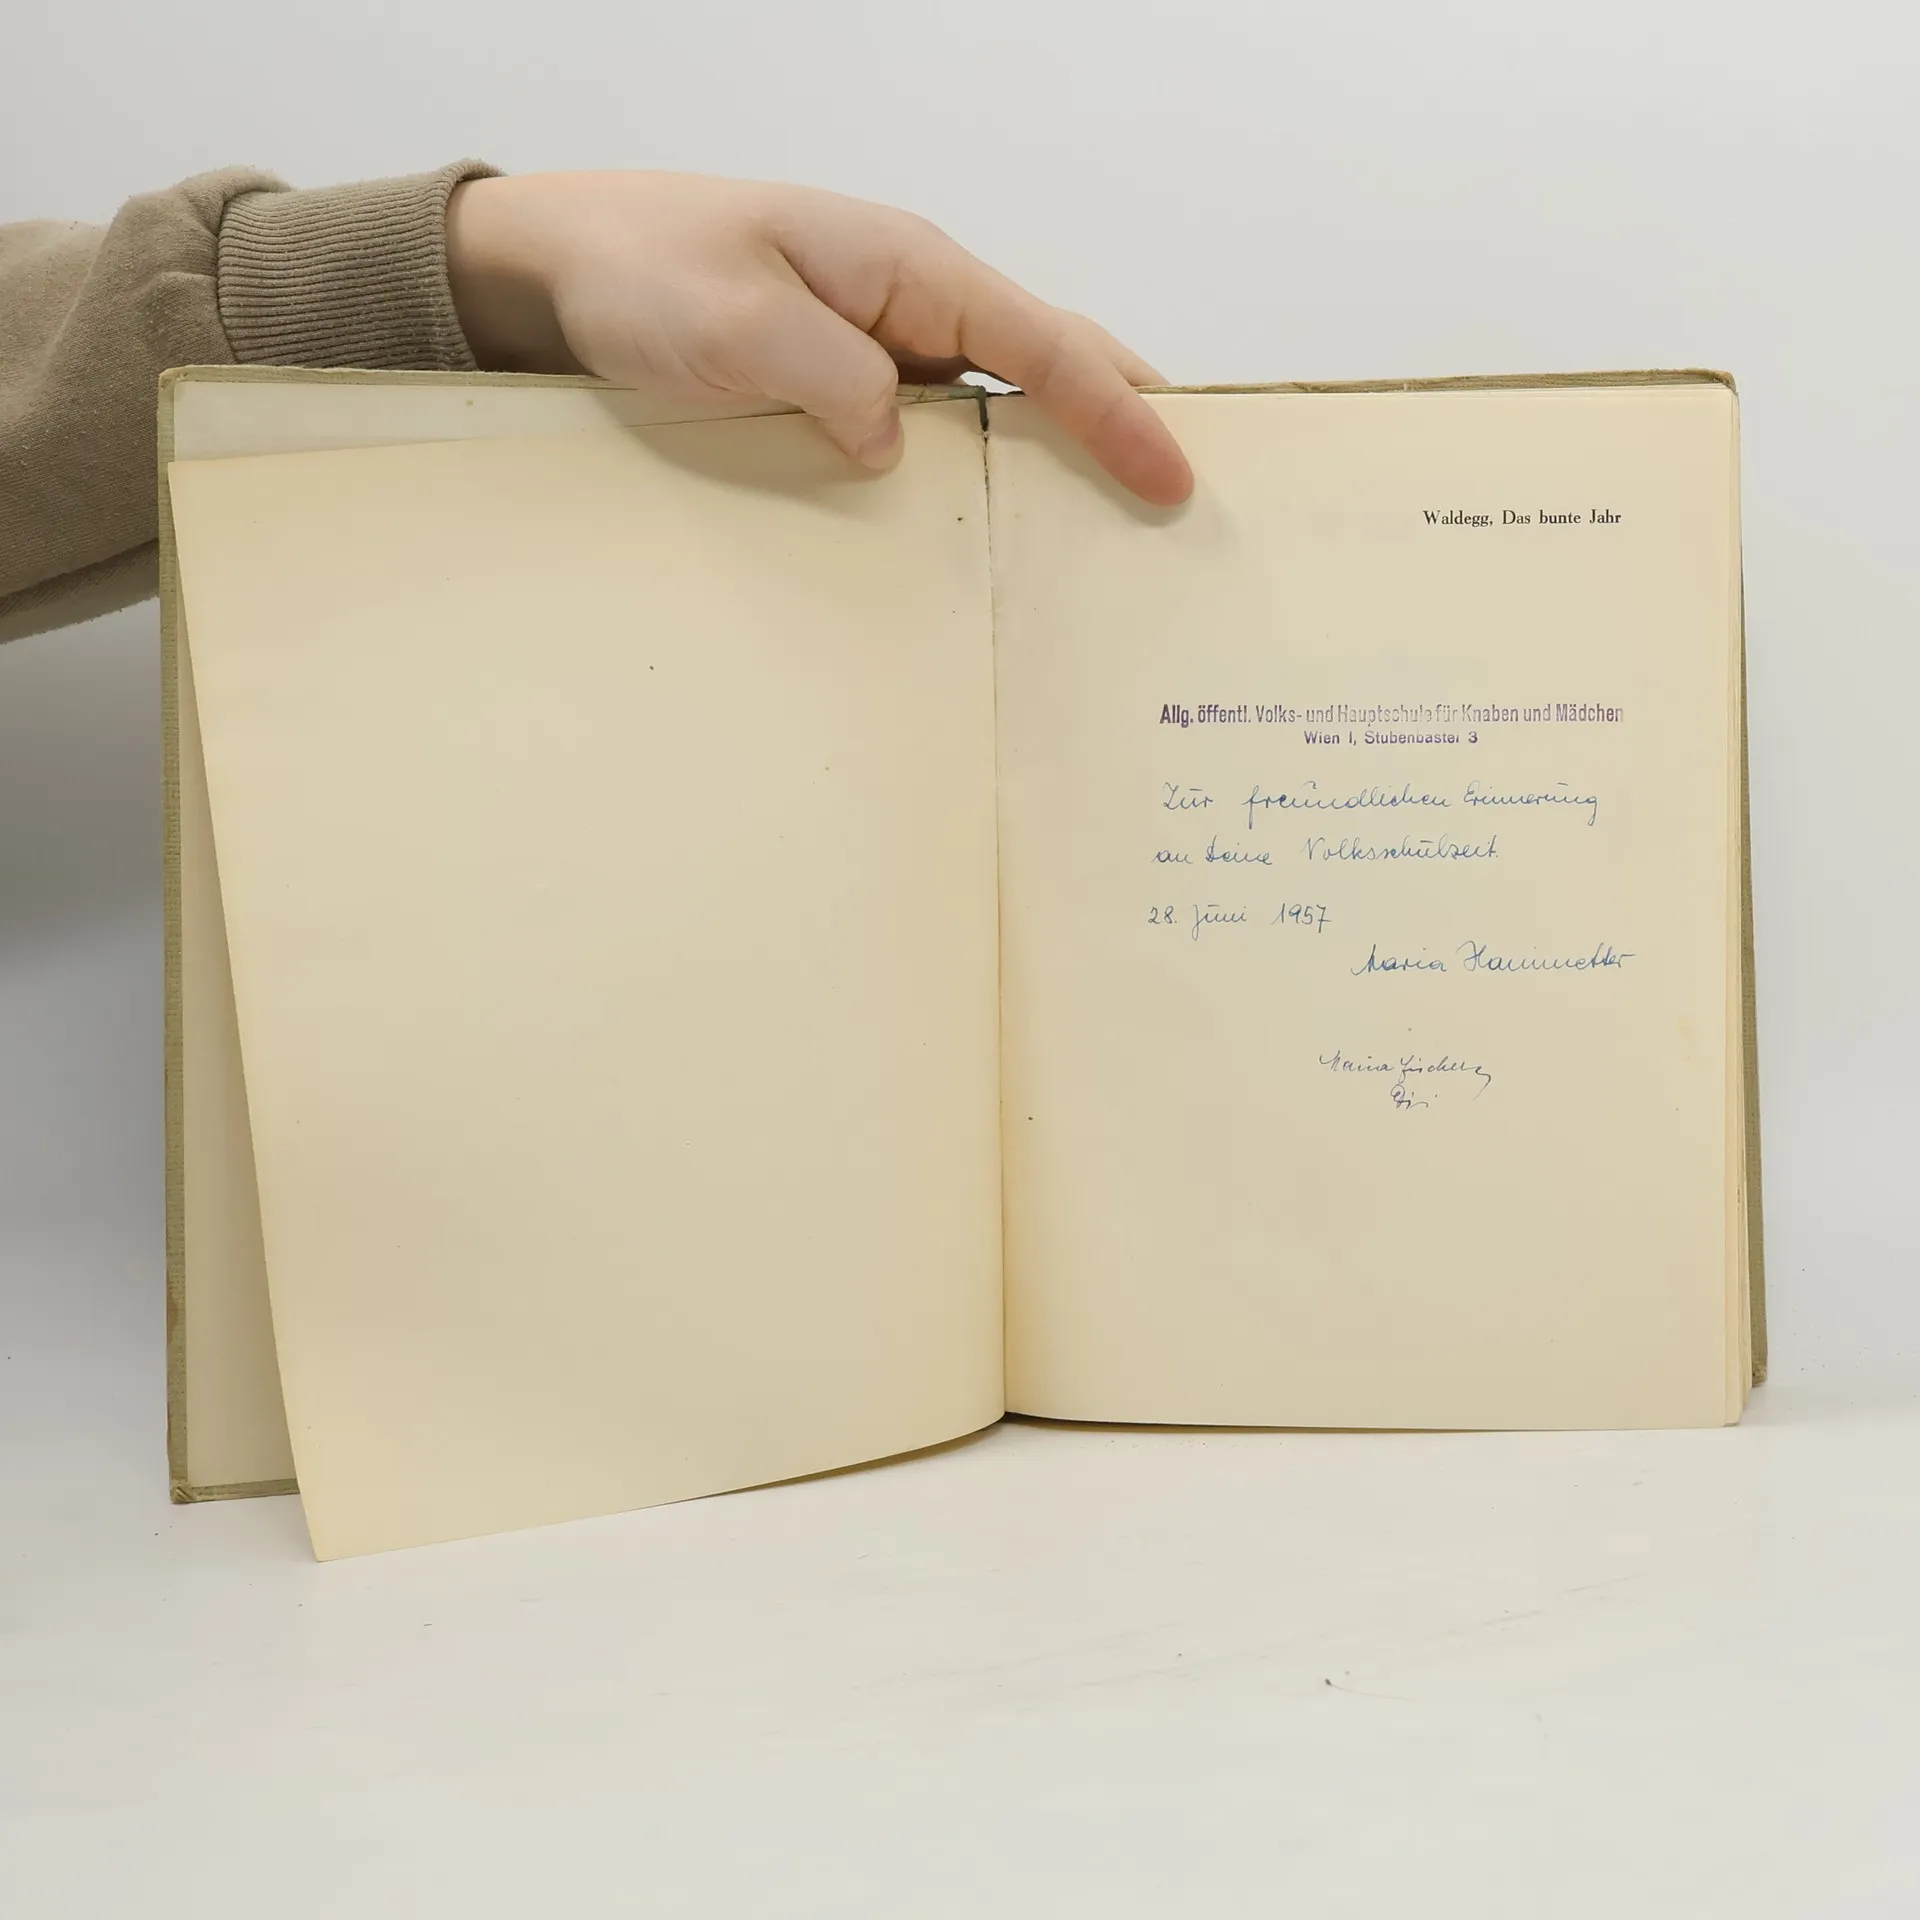 Waldegg, Das bunte Jahr
Allg. öffentl. Volks- und Hauptschule für Knaben und Mädchen
Wien I, Stubenbastei 3
Zur freundlichen Erinnerung
an Deine Volksschulzeit.
28. Juni 1957
Maria
Maria Fischer